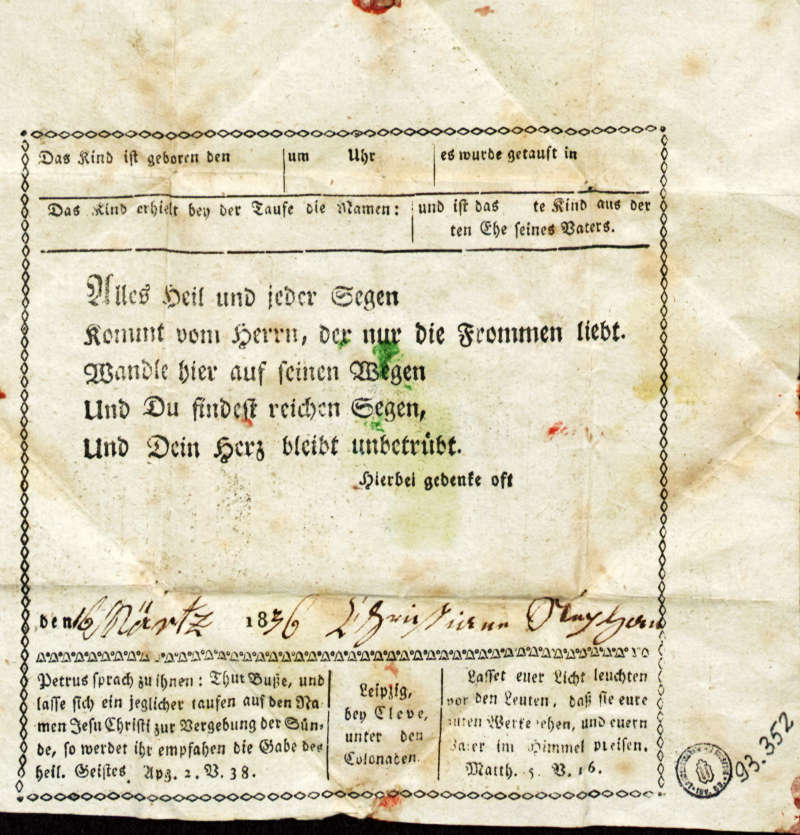 Das Kind ist geboren den
um Uhr
es wurde getauft in
Das Kind erhielt bey der Taufe die Namen:
und ist das te Kind aus der
ten Ehe seines Vaters.
Alles Heil und jeder Segen
Kommt vom Herrn, der nur die Frommen liebt.
Wandle hier auf seinen Wegen
Und Du findest reichen Segen,
Und Dein Herz bleibt unbetrübt.
Hierbei gedenke oft
den 16 Märtz 1836 Christiane Stephan
Petrus sprach zu ihnen: Thut Buße, und
lasse sich ein jeglicher taufen auf den Na
men Jesu Christi zur Vergebung der Sün-
de, so werdet ihr empfahen die Gabe des
heil. Geistes. Apg. 2. V. 38.
Leipzig,
bey Cleve,
unter den
Colonaden.
Lasset euer Licht leuchten
vor den Leuten, daß sie eure
guten Werke sehen, und euern
Vater im Himmel preisen.
Matth. 5. V. 16.
93.352